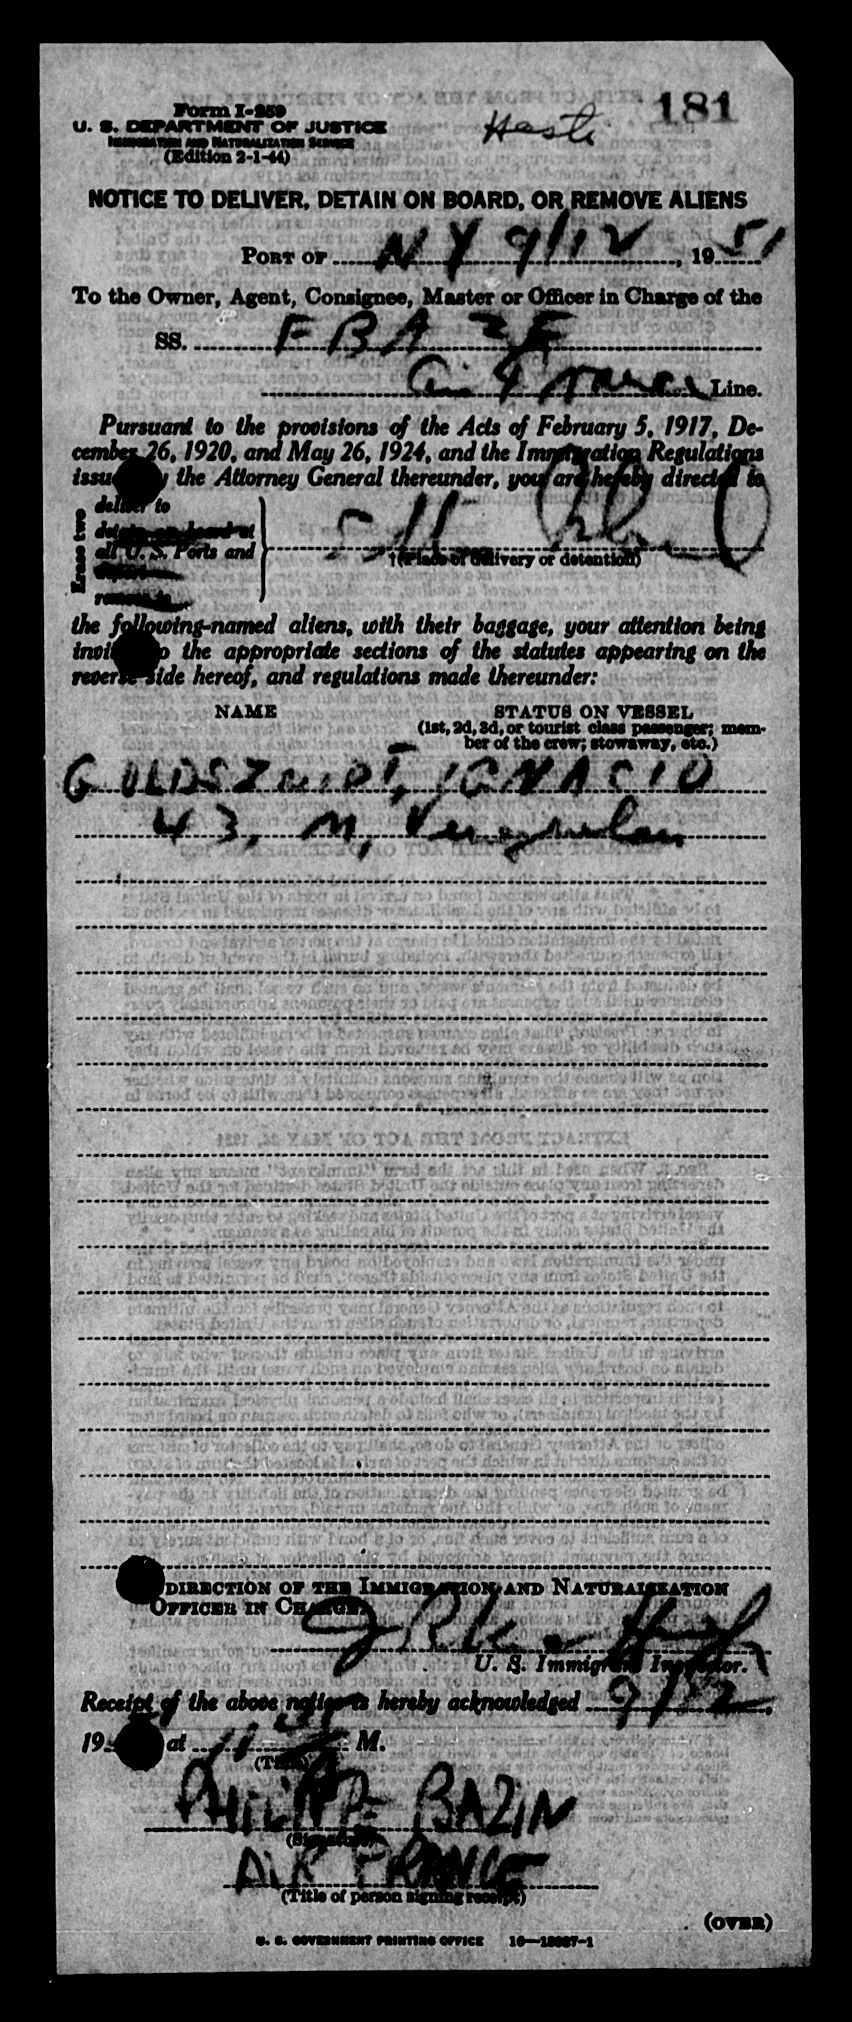 181
Form I-259
U. S. DEPARTMENT OF JUSTICE
IMMIGRATION AND NATURALIZATION SERVICE
(Edition 2-1-44)
NOTICE TO DELIVER, DETAIN ON BOARD, OR REMOVE ALIENS
PORT OF NY 9/12, 1951
To the Owner, Agent, Consignee, Master or Officer in Charge of the
SS. FBAZE
Air France Line.
Pursuant to the provisions of the Acts of February 5, 1917, De-
cember 26, 1920, and May 26, 1924, and the Immigration Regulations
issu the Attorney General thereunder, you are hereby directed to
Erase two
deliver to
detain on board at
all U. S. Ports and
remove to
†(Place of delivery or detention)
the following-named aliens, with their baggage, your attention being
invi o the appropriate sections of the statutes appearing on the
reverse side hereof, and regulations made thereunder:
NAME STATUS ON VESSEL
(1st, 2d, 3d, or tourist class passenger; mem-
ber of the crew; stowaway, etc.)
GOLDSZMIDT, IGNACIO
43, M, Venezuelan
DIRECTION OF THE IMMIGRATION AND NATURALIZATION
OFFICER IN CHARGE.
U. S. Immigrant Inspector.
Receipt of the above notice is hereby acknowledged 9/12,
19 at M.
(Time)
PHILIPPE BAZIN
(Signature)
AIR FRANCE
(Title of person signing receipt)
(OVER)
U. S. GOVERNMENT PRINTING OFFICE